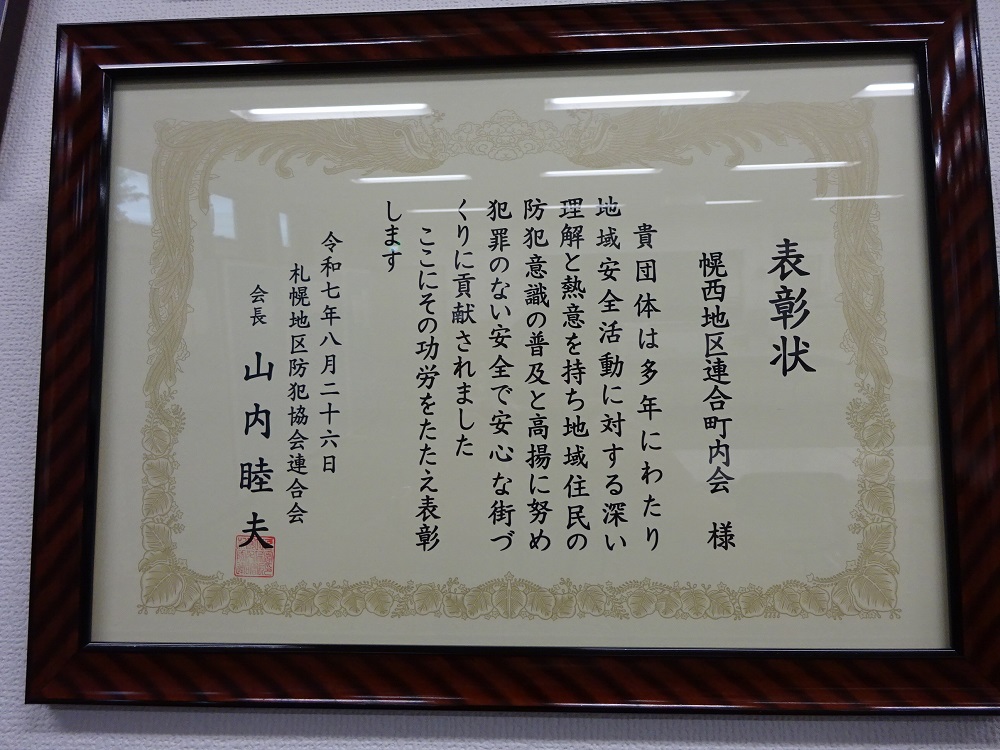 表彰状
幌西地区連合町内会 様
貴団体は多年にわたり
地域安全活動に対する深い
理解と熱意を持ち地域住民の
防犯意識の普及と高揚に努め
犯罪のない安全で安心な街づ
くりに貢献されました
ここにその功労をたたえ表彰
します
令和七年八月二十六日
札幌地区防犯協会連合会
会長 山内睦夫